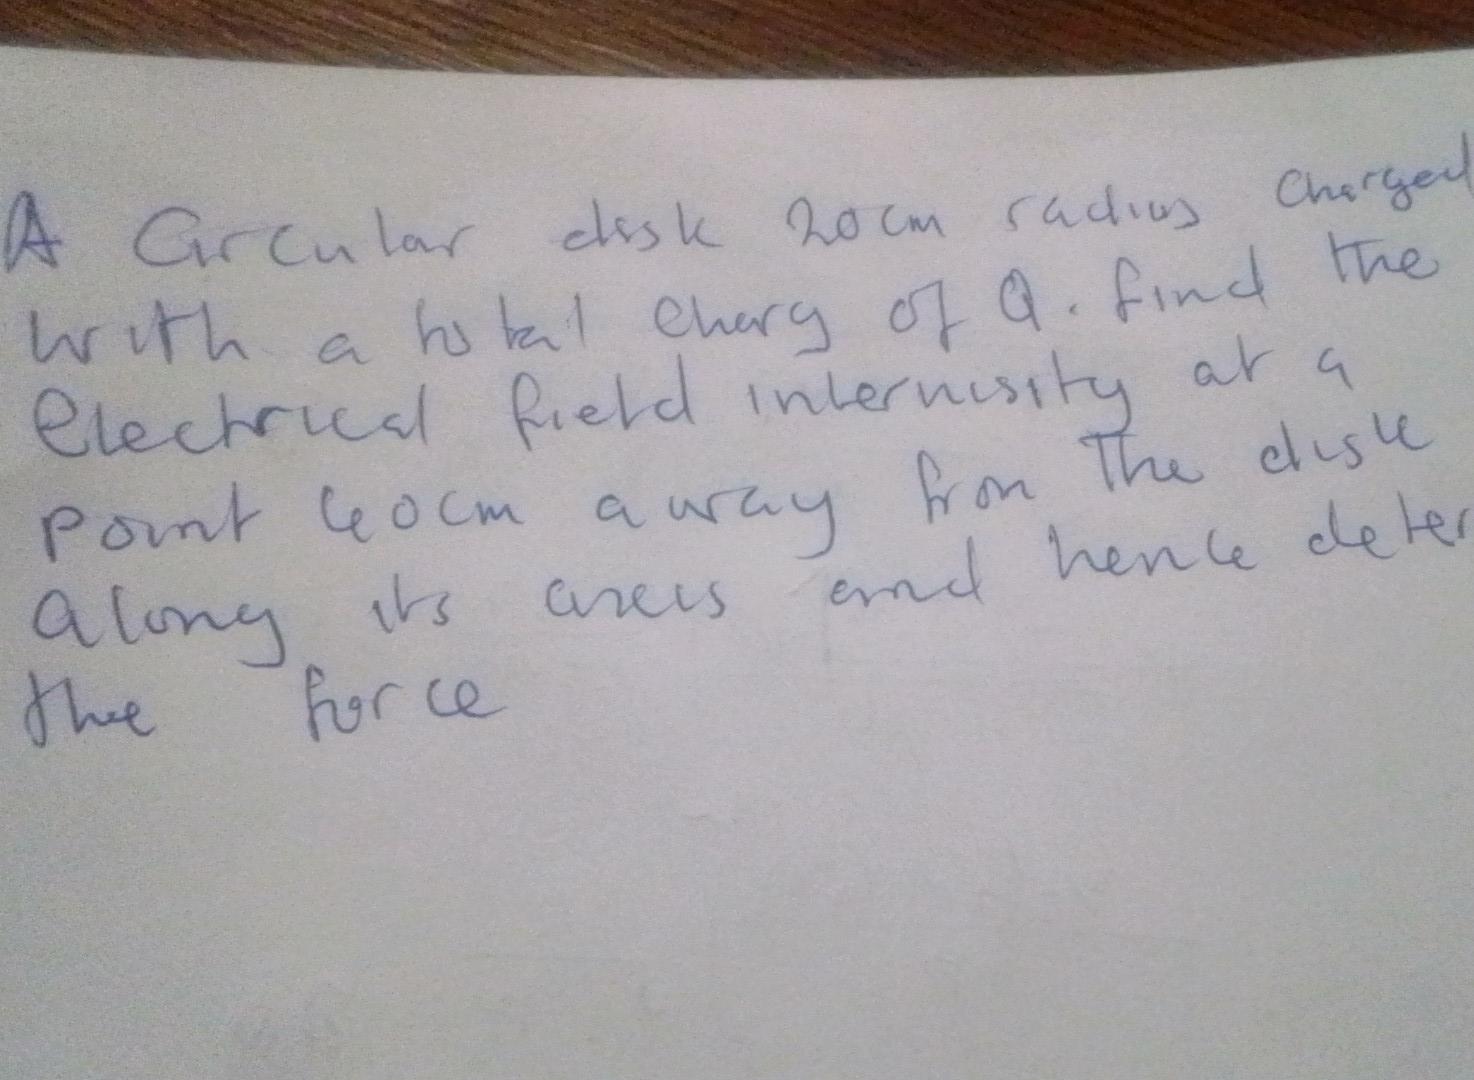 A Circular disk 20cm radius Charged
with a total Charg of Q. find the
Electrical field internisity at a
point 40cm away from The disk
along its axeis and hence deter
the force